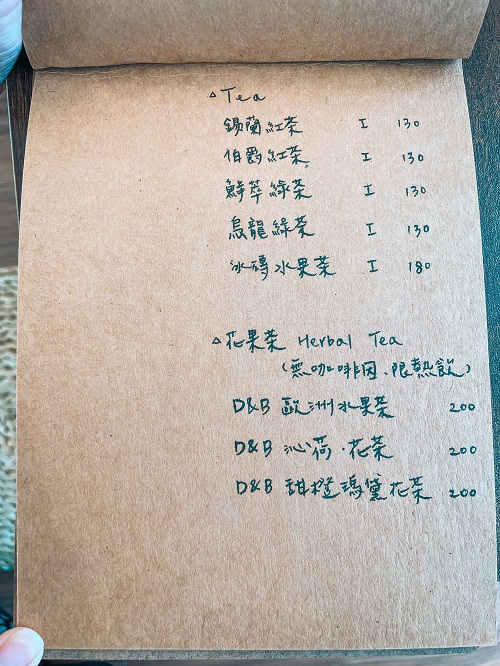 △ Tea
錫蘭紅茶 I 130
伯爵紅茶 I 130
鮮萃綠茶 I 130
烏龍綠茶 I 130
冰磚水果茶 I 180
△ 花果茶 Herbal Tea
(無咖啡因、限熱飲)
D&B 歐洲水果茶 200
D&B 沁荷·花茶 200
D&B 甜橙瑪黛花茶 200